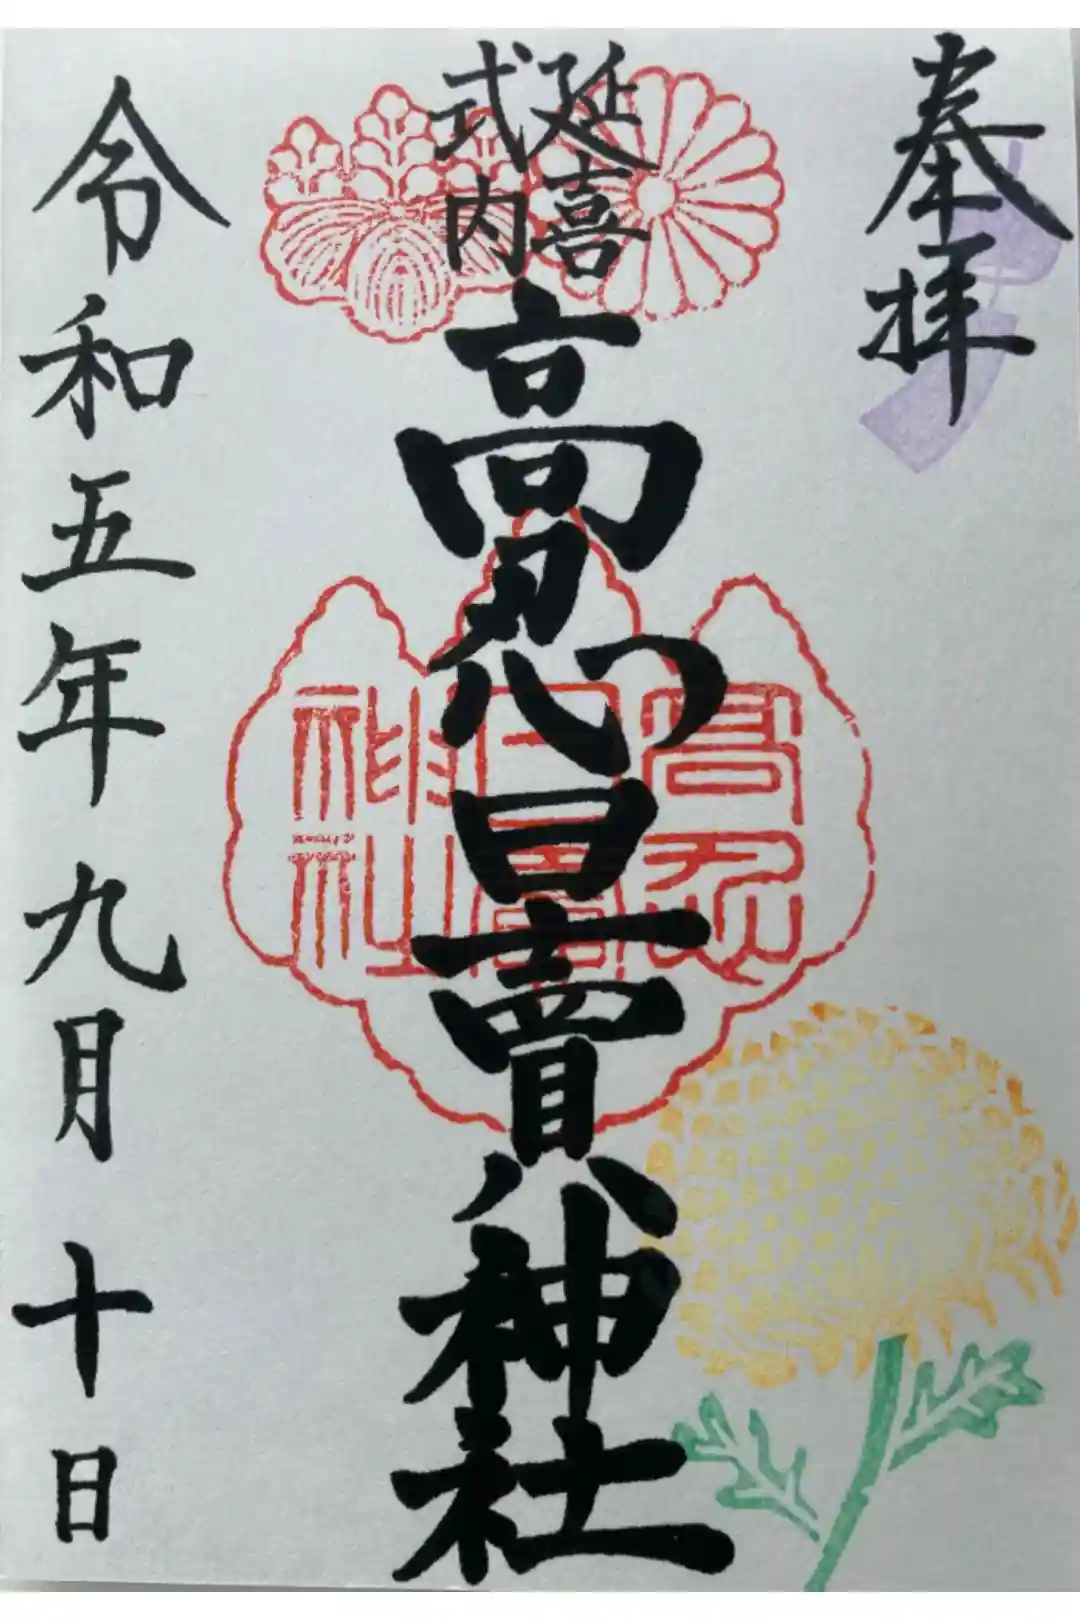 奉拝
延喜
式内
高忍日賣神社
高忍
日賣
神社
令和五年九月十日